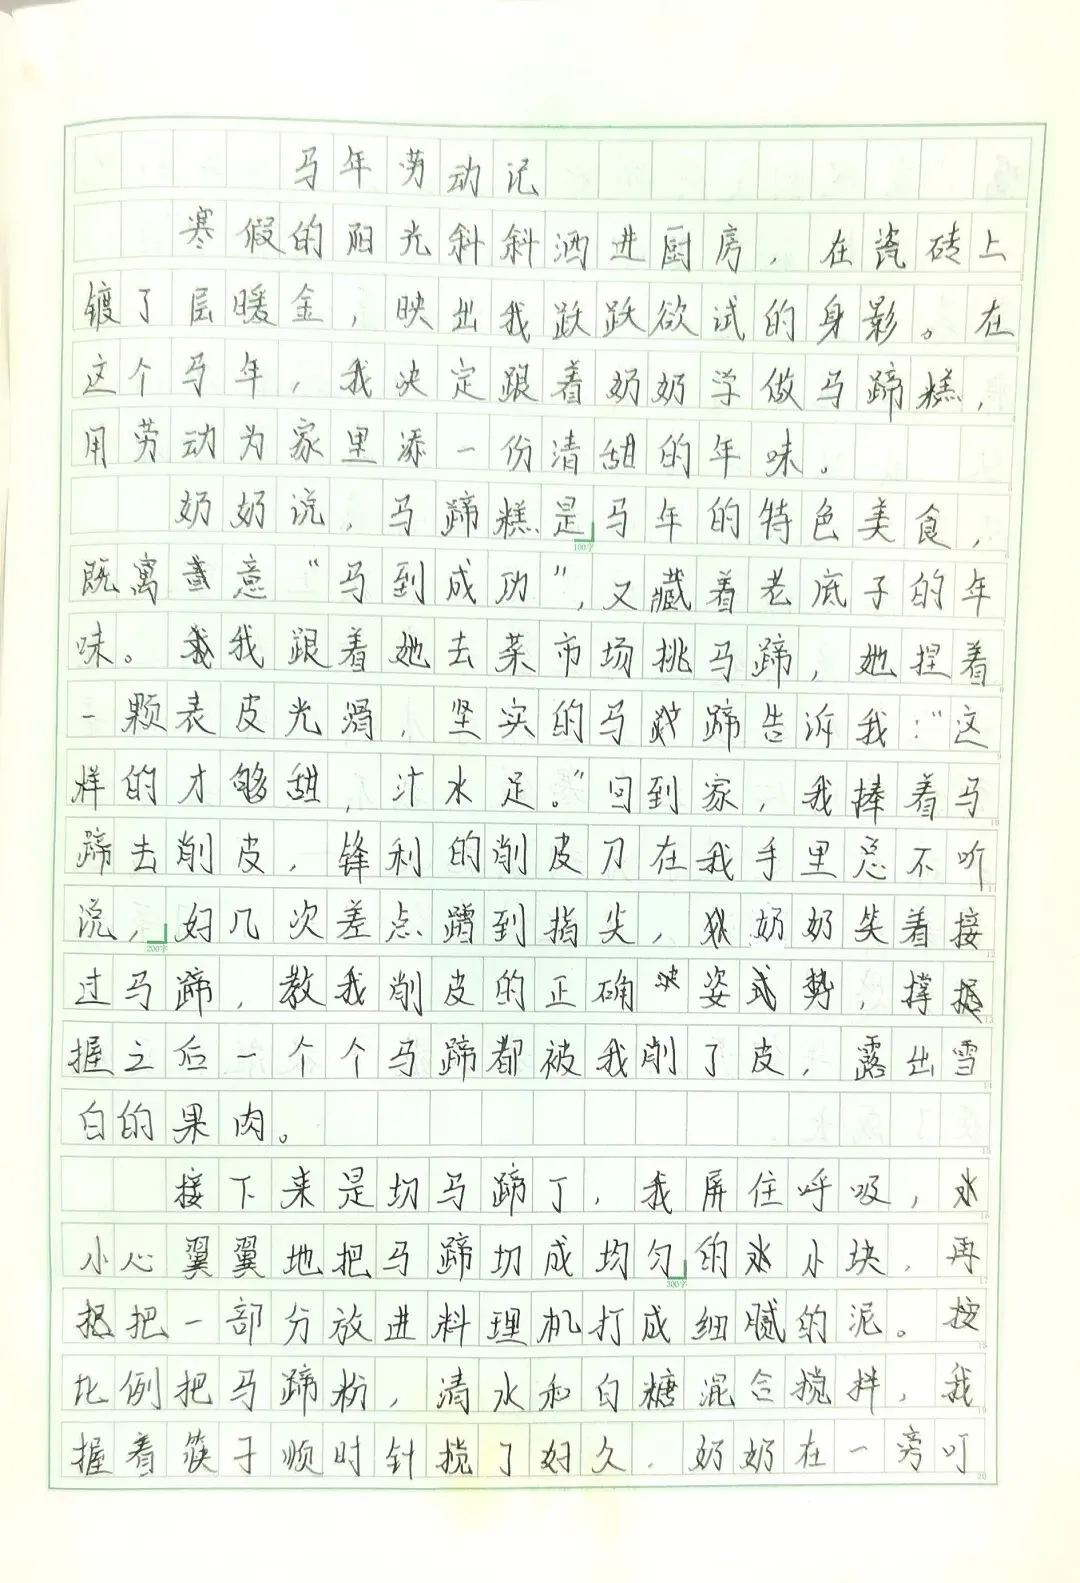 马年劳动记
寒假的阳光斜斜洒进厨房，在瓷砖上
镀了层暖金，映出我跃跃欲试的身影。在
这个马年，我决定跟着奶奶学做马蹄糕，
用劳动为家里添一份清甜的年味。
奶奶说，马蹄糕是马年的特色美食，
既寓意“马到成功”，又藏着老底子的年
味。我跟着她去菜市场挑马蹄，她捏着
一颗表皮光滑，坚实的马蹄告诉我：“这
样的才够甜，汁水足。”回到家，我捧着马
蹄去削皮，锋利的削皮刀在我手里总不听
说，好几次差点蹭到指尖，奶奶笑着接
过马蹄，教我削皮的正确姿式势，撑
握之后一个个马蹄都被我削了皮，露出雪
白的果肉。
接下来是切马蹄丁，我屏住呼吸，
小心翼翼地把马蹄切成均匀的小块，再
把一部分放进料理机打成细腻的泥。按
比例把马蹄粉，清水和白糖混合搅拌，我
握着筷子顺时针搅了好久，奶奶在一旁叮
100字
200字
300字